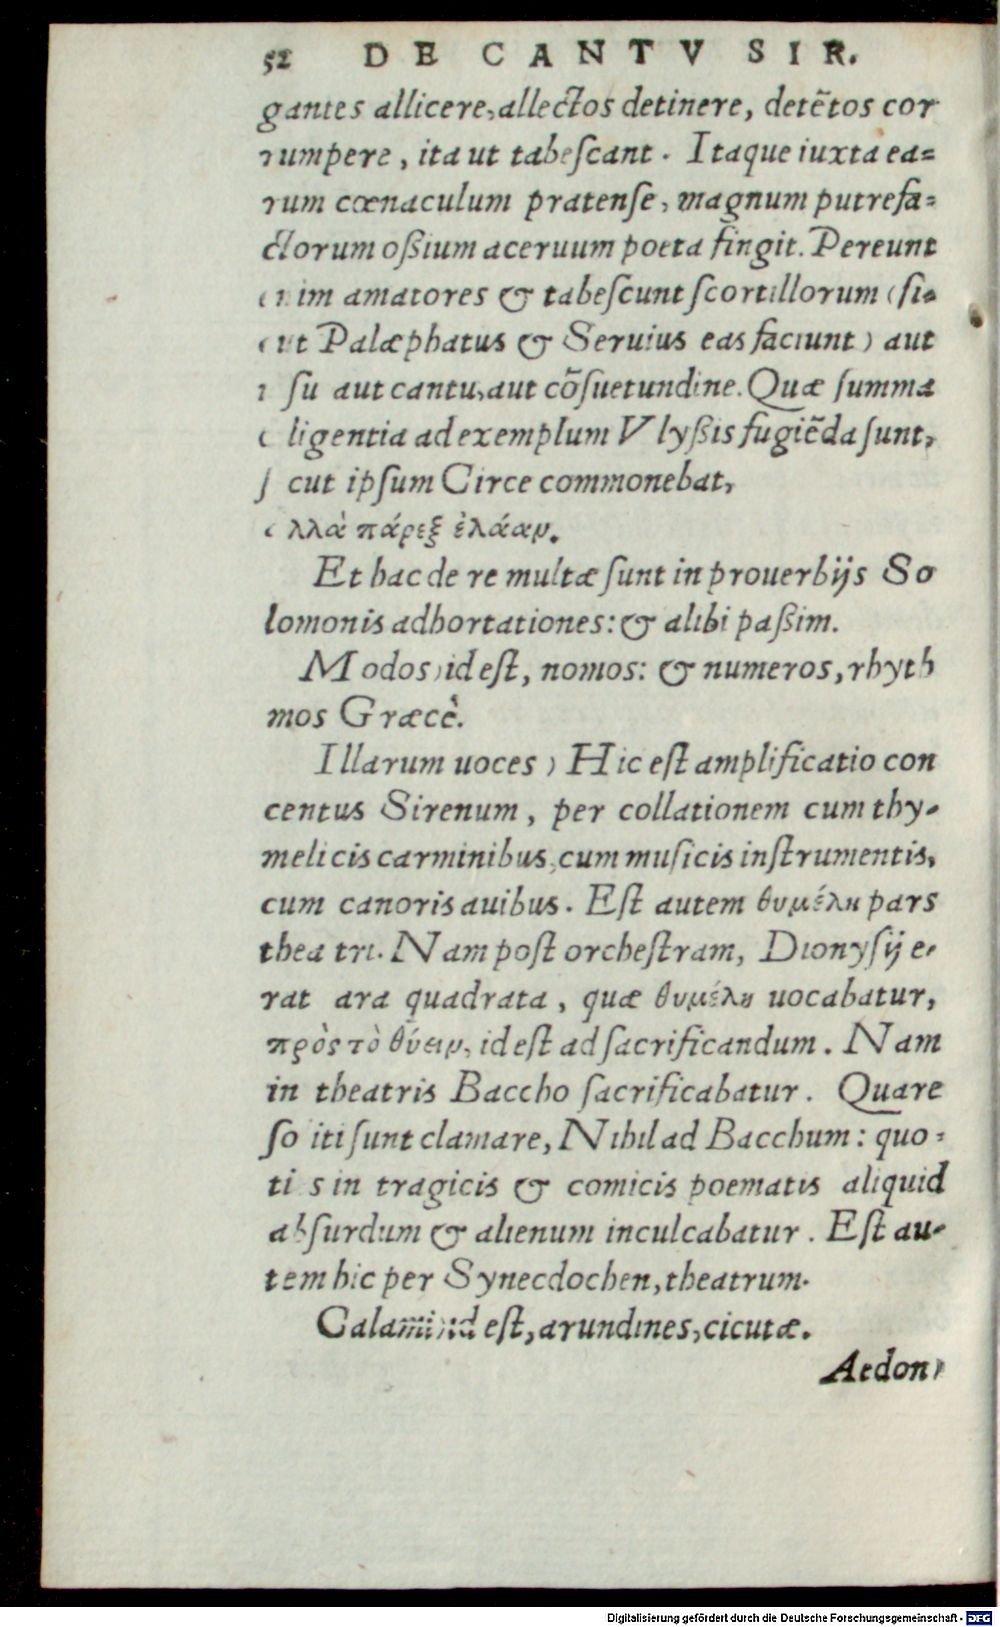 52 DE CANTV SIR.
gantes allicere, allectos detinere, detẽtos cor
rumpere, ita ut tabeſcant. Itaque iuxta ea=
rum cœnaculum pratenſe, magnum putrefa=
ctorum oßium aceruum poeta fingit. Pereunt
enim amatores & tabeſcunt ſcortillorum (ſi=
cut Palæphatus & Seruius eas faciunt) aut
ſu aut cantu, aut cõſuetundine. Quæ ſumma
ligentia ad exemplum Vlyßis fugiẽda ſunt,
cut ipſum Circe commonebat,
λλὰ πάρεξ ἐλάαν.
Et hac de re multæ ſunt in prouerbijs So
lomonis adhortationes: & alibi paßim.
Modos) id eſt, nomos: & numeros, rhyth
mos Græcè.
Illarum uoces) Hic eſt amplificatio con
centus Sirenum, per collationem cum thy=
melicis carminibus, cum muſicis inſtrumentis,
cum canoris auibus. Eſt autem θυμέλη pars
theatri. Nam poſt orcheſtram, Dionyſij e=
rat ara quadrata, quæ θυμέλη uocabatur,
πρὸς τὸ θύειν, id eſt ad ſacrificandum. Nam
in theatris Baccho ſacrificabatur. Quare
ſo iti ſunt clamare, Nihil ad Bacchum: quo=
ti s in tragicis & comicis poematis aliquid
abſurdum & alienum inculcabatur. Eſt au=
tem hic per Synecdochen, theatrum.
Calami) id eſt, arundines, cicutæ.
Aedon)
Digitalisierung gefördert durch die Deutsche Forschungsgemeinschaft - DFG